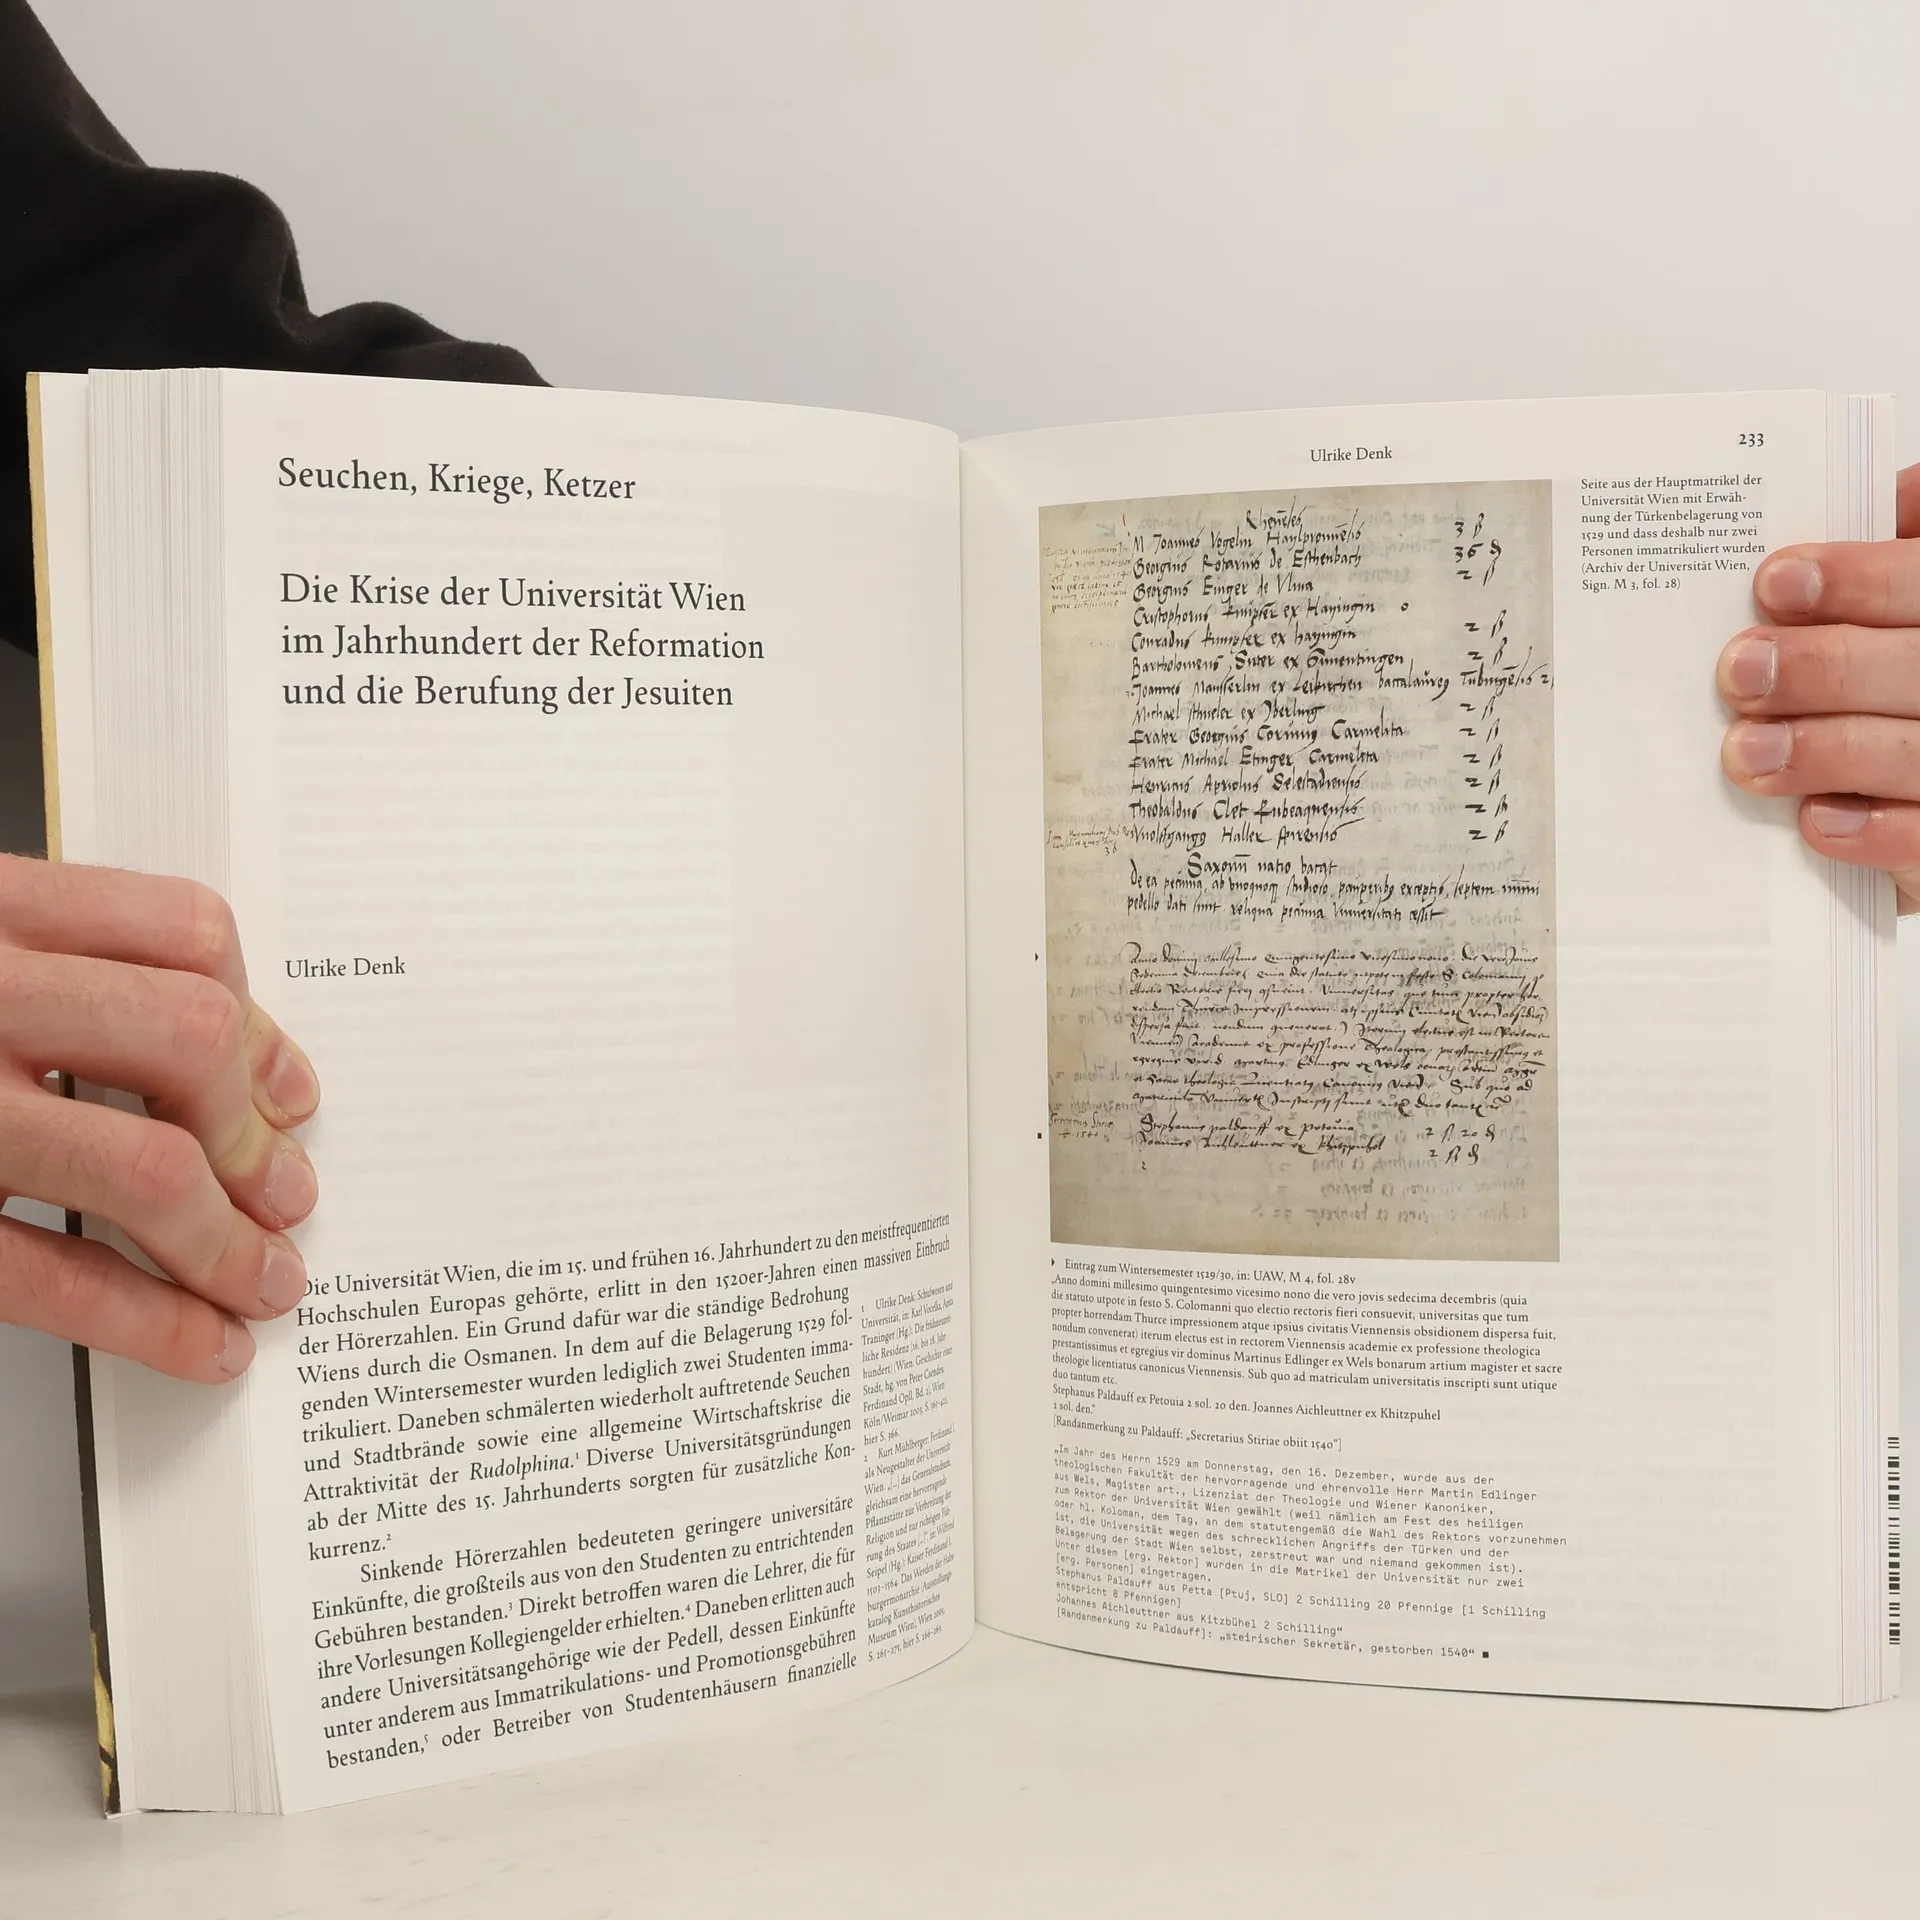 Seuchen, Kriege, Ketzer
Die Krise der Universität Wien
im Jahrhundert der Reformation
und die Berufung der Jesuiten
Ulrike Denk
Die Universität Wien, die im 15. und frühen 16. Jahrhundert zu den meistfrequentierten
Hochschulen Europas gehörte, erlitt in den 1520er-Jahren einen massiven Einbruch
der Hörerzahlen. Ein Grund dafür war die ständige Bedrohung
Wiens durch die Osmanen. In dem auf die Belagerung 1529 fol-
genden Wintersemester wurden lediglich zwei Studenten imma-
trikuliert. Daneben schmälerten wiederholt auftretende Seuchen
und Stadtbrände sowie eine allgemeine Wirtschaftskrise die
Attraktivität der Rudolphina.¹ Diverse Universitätsgründungen
ab der Mitte des 15. Jahrhunderts sorgten für zusätzliche Kon-
kurrenz.²
Sinkende Hörerzahlen bedeuteten geringere universitäre
Einkünfte, die großteils aus von den Studenten zu entrichtenden
Gebühren bestanden.³ Direkt betroffen waren die Lehrer, die für
ihre Vorlesungen Kollegiengelder erhielten.⁴ Daneben erlitten auch
andere Universitätsangehörige wie der Pedell, dessen Einkünfte
unter anderem aus Immatrikulations- und Promotionsgebühren
bestanden,⁵ oder Betreiber von Studentenhäusern finanzielle
1 Ulrike Denk: Schulwesen und
Universität, in: Karl Vocelka, Anita
Traninger (Hg.): Die frühneuzeit-
liche Residenz (16. bis 18. Jahr-
hundert) (Wien. Geschichte einer
Stadt, hg. von Peter Csendes,
Ferdinand Opll, Bd. 2), Wien/
Köln/Weimar 2003, S. 365–422,
hier S. 366.
2 Kurt Mühlberger: Ferdinand I.
als Neugestalter der Universität
Wien. „[…] das Generalstudium,
gleichsam eine hervorragende
Pflanzstätte zur Verbreitung der
Religion und zur richtigen Füh-
rung des Staates […]“, in: Wilfried
Seipel (Hg.): Kaiser Ferdinand I.
1503–1564. Das Werden der Habs-
burgermonarchie (Ausstellungs-
katalog Kunsthistorisches
Museum Wien), Wien 2003,
S. 265–275, hier S. 266–269.
Ulrike Denk
233
Seite aus der Hauptmatrikel der
Universität Wien mit Erwäh-
nung der Türkenbelagerung von
1529 und dass deshalb nur zwei
Personen immatrikuliert wurden
(Archiv der Universität Wien,
Sign. M 3, fol. 28)
Rhenēses
M Joannes Vogelin Haylpronnēsis 3 ß
Georgius Rosarius de Eschenbach 36 ₰
Georgius Einger de Vlma 2 ß
Cristophorus ex Hayingin 0
Conradus ex hayingin 2 ß
Bartholomeus Suter ex 2 ß
Joannes ex baccalaureus Tubingēsis 2
Michael ex Vberling 2 ß
Frater Georgius Coruinus Carmelita 2 ß
Frater Michael Etinger Carmelita 2 ß
Henricus Selestadiensis 2 ß
Theobaldus Clet Rubeaquensis 2 ß
Wolffgangus Haller 2 ß
Saxonū natio vacat
De ea pecunia, ab vnoquoq studioso, pauperibus exceptis, septem nūmi
pedello dati sunt reliqua pecunia Vniuersitati cessit
Eintrag zum Wintersemester 1529/30, in: UAW, M 4, fol. 28v
„Anno domini millesimo quingentesimo vicesimo nono die vero jovis sedecima decembris (quia
die statuto utpote in festo S. Colomanni quo electio rectoris fieri consuevit, universitas que tum
propter horrendam Thurce impressionem atque ipsius civitatis Viennensis obsidionem dispersa fuit,
nondum convenerat) iterum electus est in rectorem Viennensis academie ex professione theologica
prestantissimus et egregius vir dominus Martinus Edlinger ex Wels bonarum artium magister et sacre
theologie licentiatus canonicus Viennensis. Sub quo ad matriculam universitatis inscripti sunt utique
duo tantum etc.
Stephanus Paldauff ex Petouia 2 sol. 20 den. Joannes Aichleuttner ex Khitzpuhel
2 sol. den.“
[Randanmerkung zu Paldauff: „Secretarius Stiriae obiit 1540“]
„Im Jahr des Herrn 1529 am Donnerstag, den 16. Dezember, wurde aus der
theologischen Fakultät der hervorragende und ehrenvolle Herr Martin Edlinger
aus Wels, Magister art., Lizenziat der Theologie und Wiener Kanoniker,
zum Rektor der Universität Wien gewählt (weil nämlich am Fest des heiligen
oder hl. Koloman, dem Tag, an dem statutengemäß die Wahl des Rektors vorzunehmen
ist, die Universität wegen des schrecklichen Angriffs der Türken und der
Belagerung der Stadt Wien selbst, zerstreut war und niemand gekommen ist).
Unter diesem [erg. Rektor] wurden in die Matrikel der Universität nur zwei
[erg. Personen] eingetragen.
Stephanus Paldauff aus Petta [Ptuj, SLO] 2 Schilling 20 Pfennige [1 Schilling
entspricht 8 Pfennigen]
Johannes Aichleuttner aus Kitzbühel 2 Schilling“
[Randanmerkung zu Paldauff]: „steirischer Sekretär, gestorben 1540“